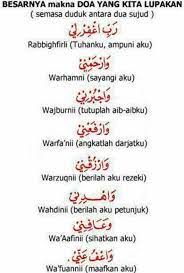 BESARNYA makna DOA YANG KITA LUPAKAN
( semasa duduk antara dua sujud )
رَبِّ اغْفِرْلِيْ
Rabbighfirli (Tuhanku, ampuni aku)
وَارْحَمْنِيْ
Warhamni (sayangi aku)
وَاجْبُرْنِيْ
Wajburnii (tutuplah aib-aibku)
وَارْفَعْنِيْ
Warfa'nii (angkatlah darjatku)
وَارْزُقْنِيْ
Warzuqnii (berilah aku rezeki)
وَاهْدِنِيْ
Wahdinii (berilah aku petunjuk)
وَعَافِنِيْ
Wa'Aafinii (sihatkan aku)
وَاعْفُ عَنِّيْ
Wa'fuannii (maafkan aku)